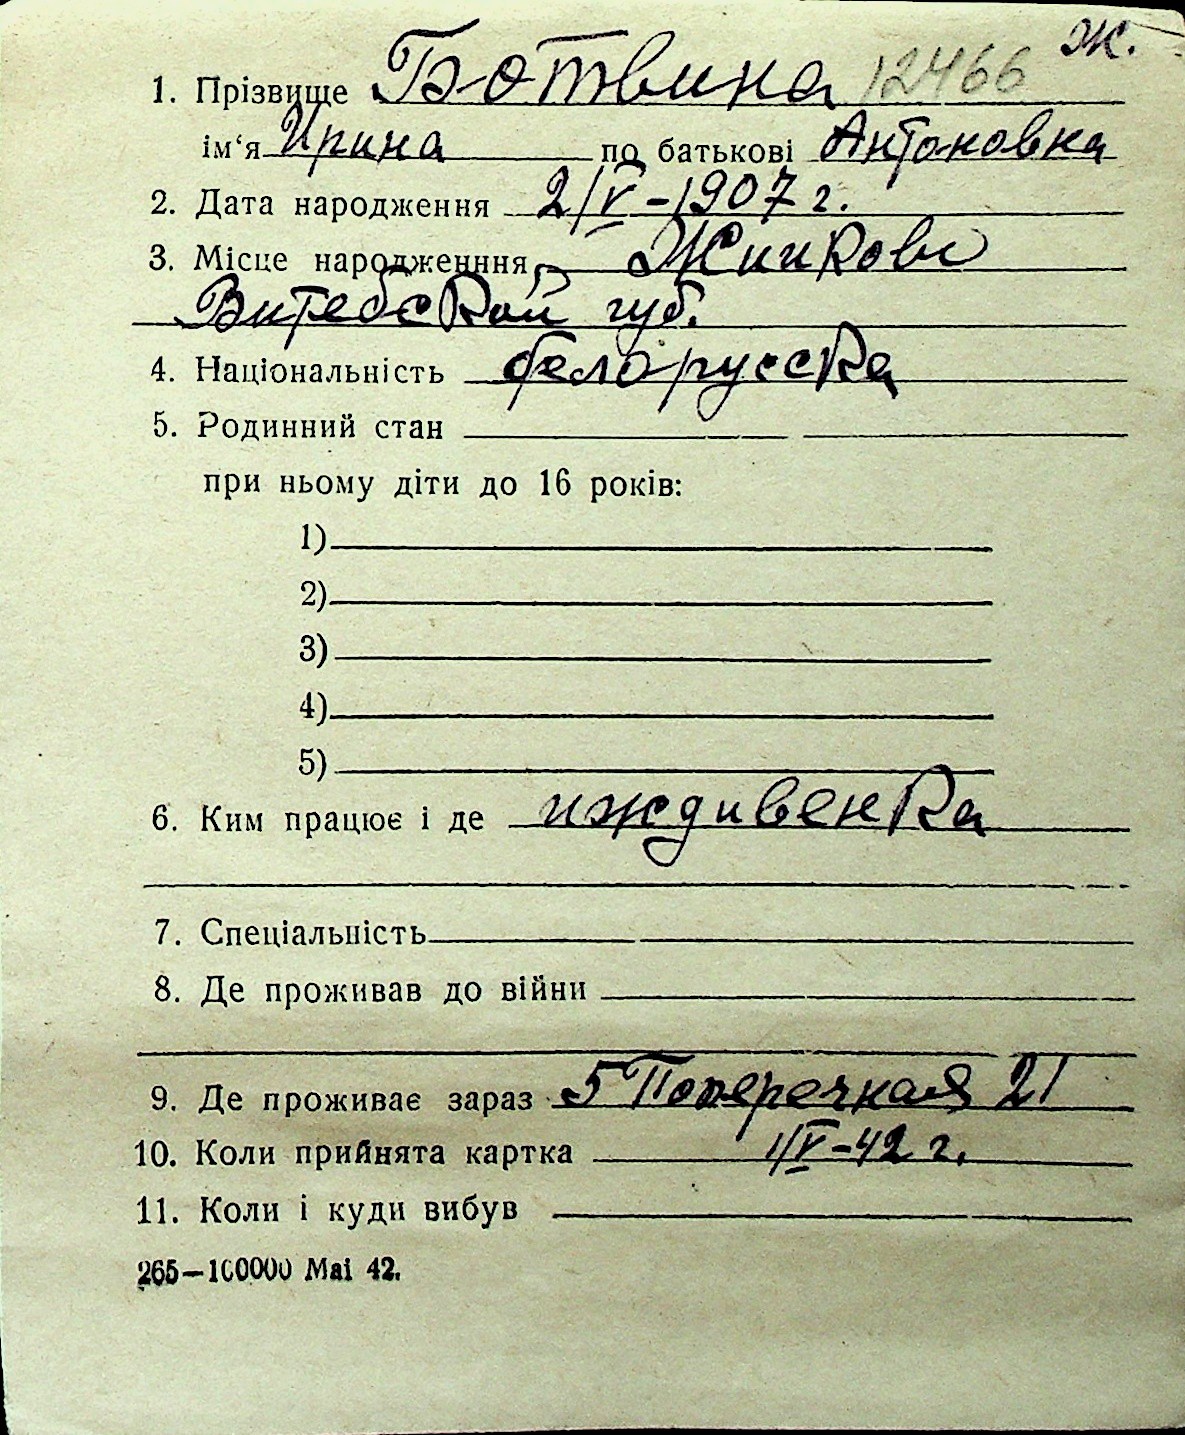 Ж.
1. Прізвище Ботвина 12466
ім‘я Ирина по батькові Антоновна
2. Дата народження 2/V-1907 г.
3. Місце народженння
Витебской губ.
4. Національність белорусска
5. Родинний стан
при ньому діти до 16 років:
1)
2)
3)
4)
5)
6. Ким працює і де иждивенка
7. Спеціальність
8. Де проживав до війни
9. Де проживає зараз 5 Поперечная 21
10. Коли прийнята картка 1/V-42 г.
11. Коли і куди вибув
265—100000 Mai 42.